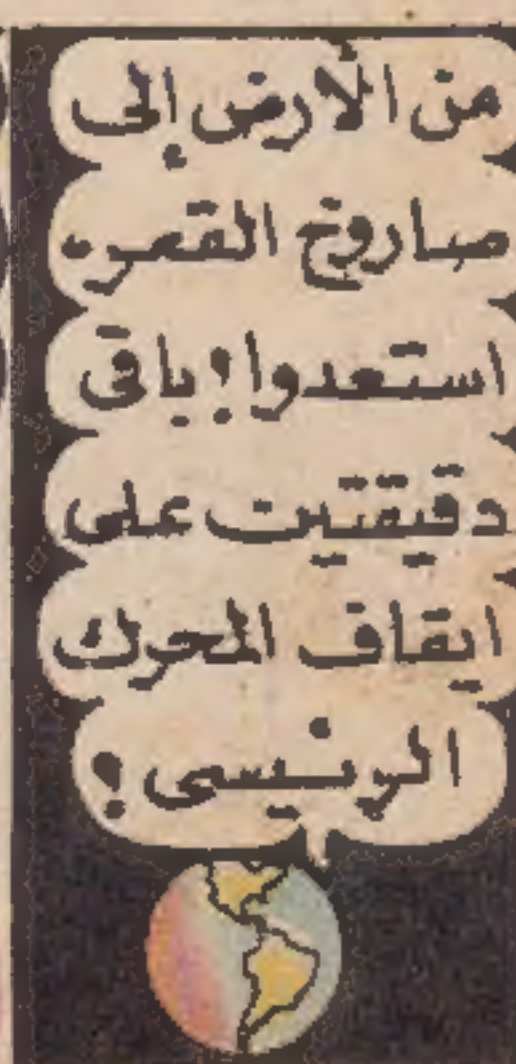 من الأرض إلى
صاروخ القمر.
استعدوا! باقى
دقيقتين على
ايقاف المحرك
الرئيسى!